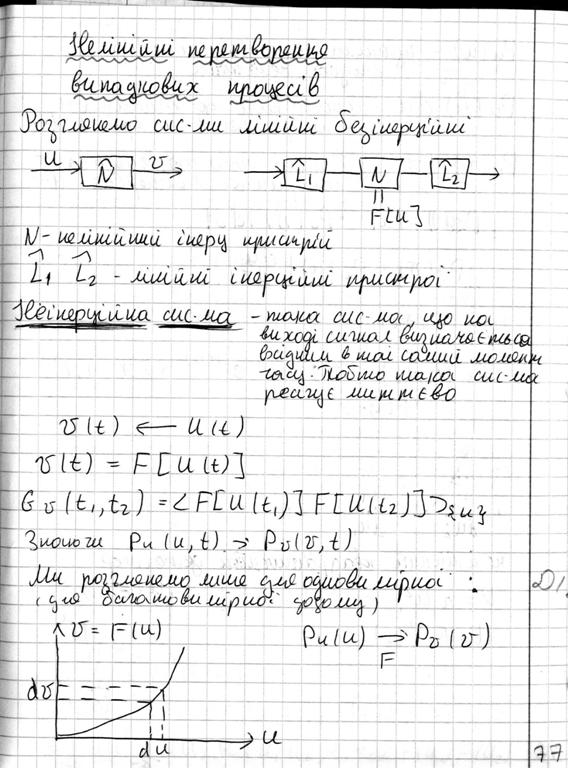 Нелінійні перетворення
випадкових процесів
Розглянемо сис-ми лінійні безінерційні
u N̂ v L̂₁ N L̂₂
F[u]
N - нелінійний інерц пристрій
L̂₁ L̂₂ - лінійні інерційні пристрої
Неінерційна сис-ма - така сис-ма, що на
виході сигнал визначається
вхідним в той самий момент
часу. Тобто така сис-ма
реагує миттєво
v(t) ← u(t)
v(t) = F[u(t)]
G_v(t₁,t₂) = <F[u(t₁)] F[u(t₂)]>{u}
Знаючи P_u(u,t) → P_v(v,t)
Ми розглянемо лише для одновимірної :
(для багатовимірної додому)
v = F(u) P_u(u) → P_v(v)
F
dv
du u
77